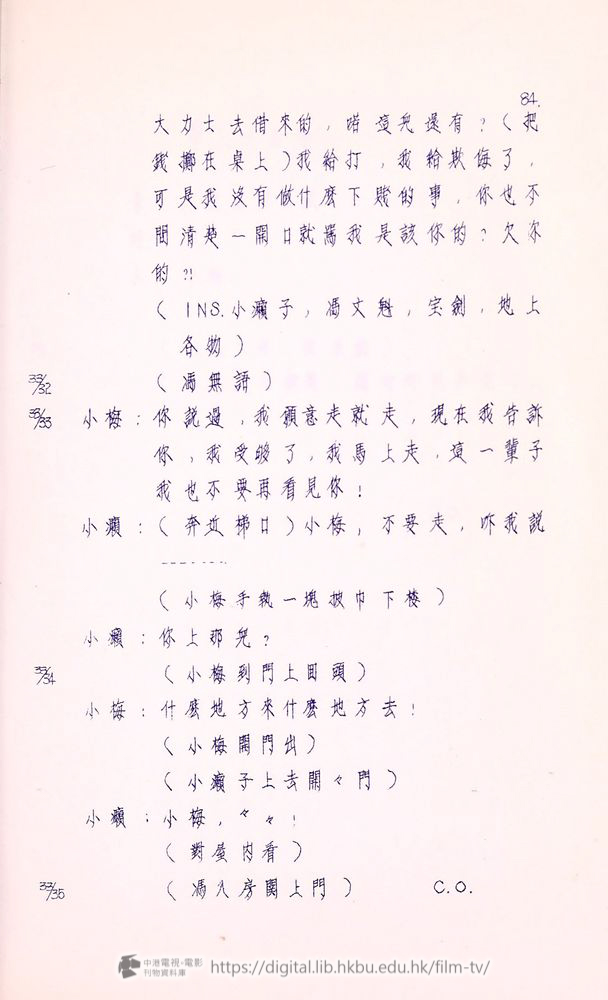 84.
大力士去借來的，喏這兒還有？（把
錢擲在桌上）我給打，我給欺侮了，
可是我沒有做什麽下賤的事，你也不
問清楚一開口就罵我是該你的？欠你
的?!
（INS.小癩子，馮文魁，宝劍，地上
各物）
33/32 （馮無語）
33/33 小梅：你說過，我願意走就走，現在我告訴
你，我受够了，我馬上走，這一輩子
我也不要再看見你！
小癩：（奔近梯口）小梅，不要走，听我説
-------
（小梅手執一塊披巾下楼）
小癩：你上那兒？
33/34 （小梅到門上回頭）
小梅：什麽地方來什麽地方去！
（小梅開門出）
（小癩子上去開々門）
小癩：小梅，々々！
（對屋内看）
33/35 （馮入房関上門） C.O.
中港電視·電影
刊物資料庫
https://digital.lib.hkbu.edu.hk/film-tv/